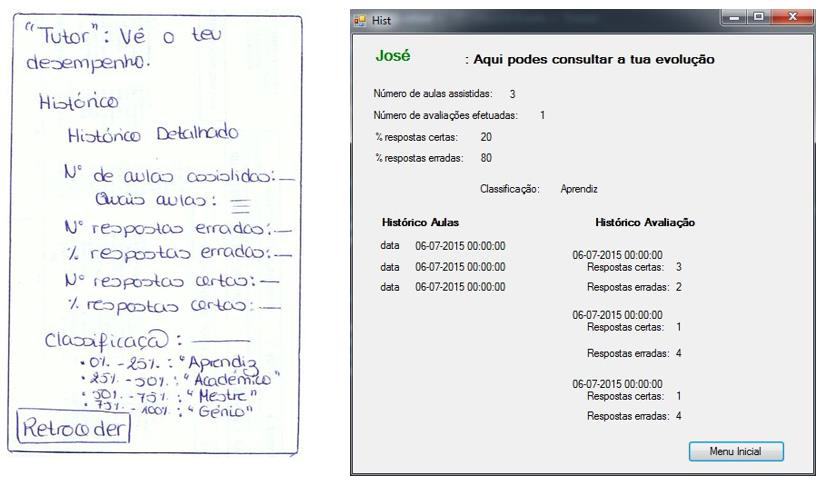 "Tutor": Vê o teu
desempenho.
Histórico
Histórico Detalhado
Nº de aulas assistidas:__
Quais aulas:
Nº respostas erradas:__
% respostas erradas:__
Nº respostas certas:__
% respostas certas:__
Classificação: ____
• 0% - 25% : "Aprendiz
• 25% - 50% : "Académico"
• 50% - 75% : "Mestre"
• 75% - 100% : "Génio"
Retroceder
Hist
José : Aqui podes consultar a tua evolução
Número de aulas assistidas: 3
Número de avaliações efetuadas: 1
% respostas certas: 20
% respostas erradas: 80
Classificação: Aprendiz
Histórico Aulas
data 06-07-2015 00:00:00
data 06-07-2015 00:00:00
data 06-07-2015 00:00:00
Histórico Avaliação
06-07-2015 00:00:00
Respostas certas: 3
Respostas erradas: 2
06-07-2015 00:00:00
Respostas certas: 1
Respostas erradas: 4
06-07-2015 00:00:00
Respostas certas: 1
Respostas erradas: 4
Menu Inicial